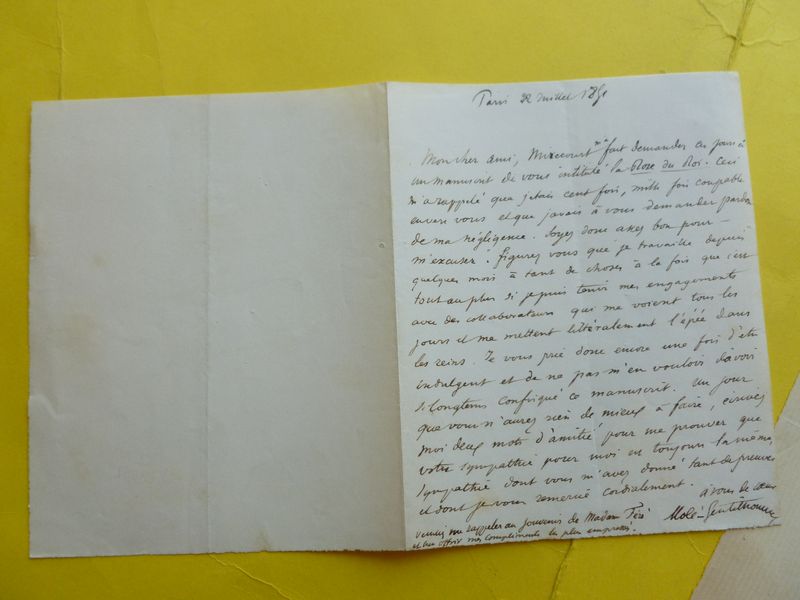 Paris 22 Juillet 185
Mon cher ami, Mirecourt m'a fait demander ces jours ci
un manuscrit de vous intitulé la Rose du Roi. Ceci
m'a rappelé que j'étais cent fois, mille fois coupable
envers vous et que j'avais à vous demander pardon
de ma négligence. Soyez donc assez bon pour
m'excuser. figurez vous que je travaille depuis
quelques mois à tant de choses à la fois que c'est
tout au plus si je puis tenir mes engagements
avec des collaborateurs qui me voient tous les
jours et me mettent littéralement l'épée dans
les reins. Je vous prie donc encore une fois d'être
indulgent et de ne pas m'en vouloir d'avoir
si longtems confisqué ce manuscrit. Un jour
que vous n'aurez rien de mieux à faire, écrivez
moi deux mots d'amitié pour me prouver que
votre sympathie pour moi est toujours la même,
sympathie dont vous m'avez donné tant de preuves
et dont je vous remercie cordialement.
à vous de cœur
Molé-Gentilhomme
veuillez me rappeler au souvenir de Madame Féré
et lui offrir mes compliments les plus empressés.